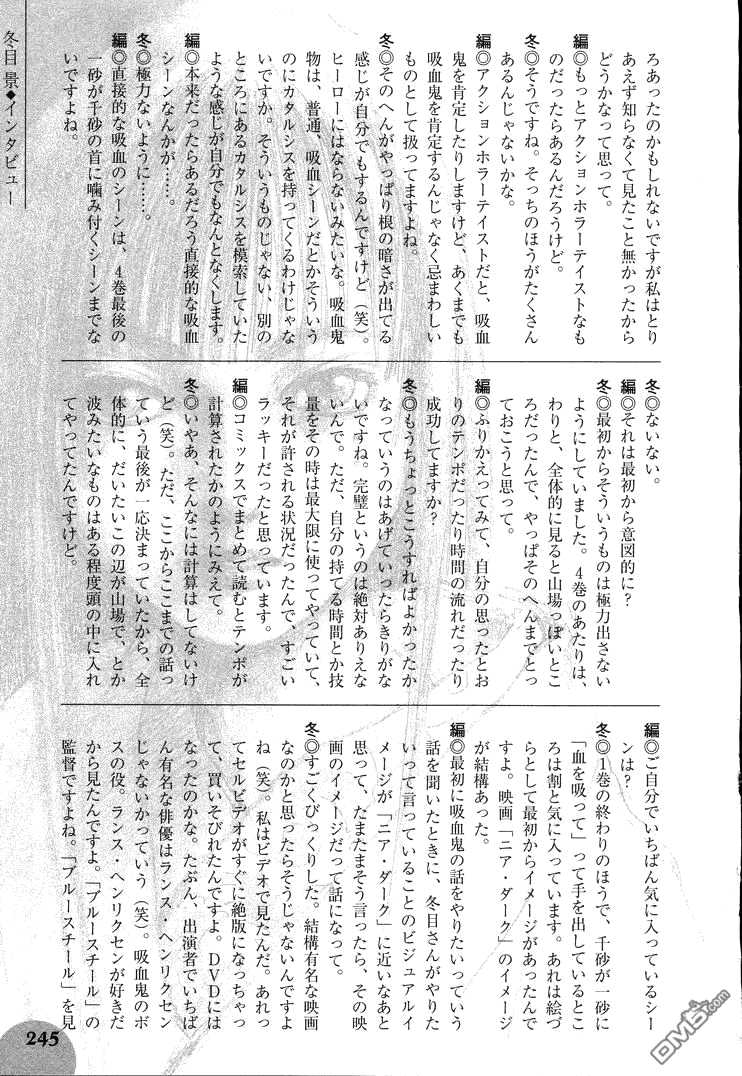 冬目 景◆インタビュー
ろあったのかもしれないですが私はとり
あえず知らなくて見たこと無かったから
どうかなって思って。
編◎もっとアクションホラーテイストなも
のだったらあるんだろうけど。
冬◎そうですね。そっちのほうがたくさん
あるんじゃないかな。
編◎アクションホラーテイストだと、吸血
鬼を肯定したりしますけど、あくまでも
吸血鬼を肯定するんじゃなく忌まわしい
ものとして扱ってますよね。
冬◎そのへんがやっぱり根の暗さが出てる
感じが自分でもするんですけど（笑）。
ヒーローにはならないみたいな。吸血鬼
物は、普通、吸血シーンだとかそういう
のにカタルシスを持ってくるわけじゃな
いですか。そういうものじゃない、別の
ところにあるカタルシスを模索していた
ような感じが自分でもなんとなくします。
編◎本来だったらあるだろう直接的な吸血
シーンなんかが……。
冬◎極力ないように……。
編◎直接的な吸血のシーンは、4巻最後の
一砂が千砂の首に噛み付くシーンまでな
いですよね。
冬◎ないない。
編◎それは最初から意図的に？
冬◎最初からそういうものは極力出さない
ようにしていました。4巻のあたりは、
わりと、全体的に見ると山場っぽいとこ
ろだったんで、やっぱそのへんまでとっ
ておこうと思って。
編◎ふりかえってみて、自分の思ったとお
りのテンポだったり時間の流れだったり
成功してますか？
冬◎もうちょっとこうすればよかったか
なっていうのはあげていったらきりがな
いですね。完璧というのは絶対ありえな
いんで。ただ、自分の持てる時間とか技
量をその時は最大限に使ってやっていて、
それが許される状況だったんで、すごい
ラッキーだったと思っています。
編◎コミックスでまとめて読むとテンポが
計算されたかのようにみえて。
冬◎いやあ、そんなには計算はしてないけ
ど（笑）。ただ、ここからここまでの話っ
ていう最後が一応決まっていたから、全
体的に、だいたいこの辺が山場で、とか
波みたいなものはある程度頭の中に入れ
てやってたんですけど。
編◎ご自分でいちばん気に入っているシー
ンは？
冬◎1巻の終わりのほうで、千砂が一砂に
「血を吸って」って手を出しているとこ
ろは割と気に入っています。あれは絵づ
らとして最初からイメージがあったんで
すよ。映画「ニア・ダーク」のイメージ
が結構あった。
編◎最初に吸血鬼の話をやりたいっていう
話を聞いたときに、冬目さんがやりた
いって言っていることのビジュアルイ
メージが「ニア・ダーク」に近いなあと
思って、たまたまそう言ったら、その映
画のイメージだって話になって。
冬◎すごくびっくりした。結構有名な映画
なのかと思ったらそうじゃないんですよ
ね（笑）。私はビデオで見たんだ。あれっ
てセルビデオがすぐに絶版になっちゃっ
て、買いそびれたんですよ。DVDには
なったのかな。たぶん、出演者でいちば
ん有名な俳優はランス・ヘンリクセン
じゃないかっていう（笑）。吸血鬼のボ
スの役。ランス・ヘンリクセンが好きだ
から見たんですよ。「ブルースチール」の
監督ですよね。「ブルースチール」を見
245
DM5.com